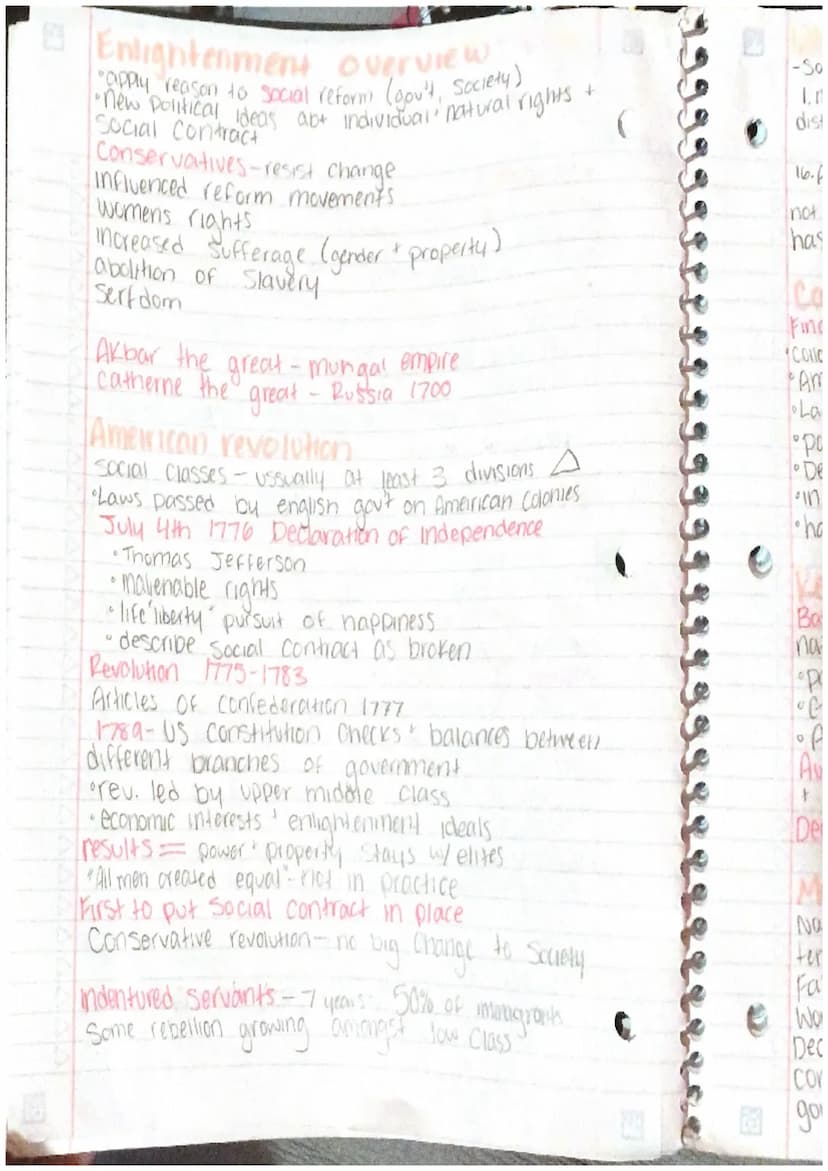 Enlightenment overview
•apply reason to social reform (gov't, society)
•new political ideas abt individual + natural rights +
social contract
Conservatives - resist change
influenced reform movements
womens rights
increased sufferage (gender + property)
abolition of slavery
serfdom
Akbar the great - mungal empire
catherne the great - Russia 1700
Ameirican revolution
social classes - ussually at least 3 divisions △
•Laws passed by english gov't on American colonies
July 4th 1776 Declaration of Independence
•Thomas Jefferson
•inalienable rights
•life liberty pursuit of happiness
•describe social contract as broken
Revolution 1775-1783
Articles of confederation 1777
1789- US constitution checks + balances between
different branches of government
•rev. led by upper middle class
•economic interests + enlightenment ideals
results = power + property stays w/ elites
"All men created equal" - not in practice
First to put social contract in place
Conservative revolution - no big change to society
indentured servants - 7 years 50% of
Some rebellion growing amongst low class
-So
1.
dist
16.
not
has
Co
Fin
•La
•po
•De
•in
•ha
Na
ter
Fa
Wo
Dec
cor
go